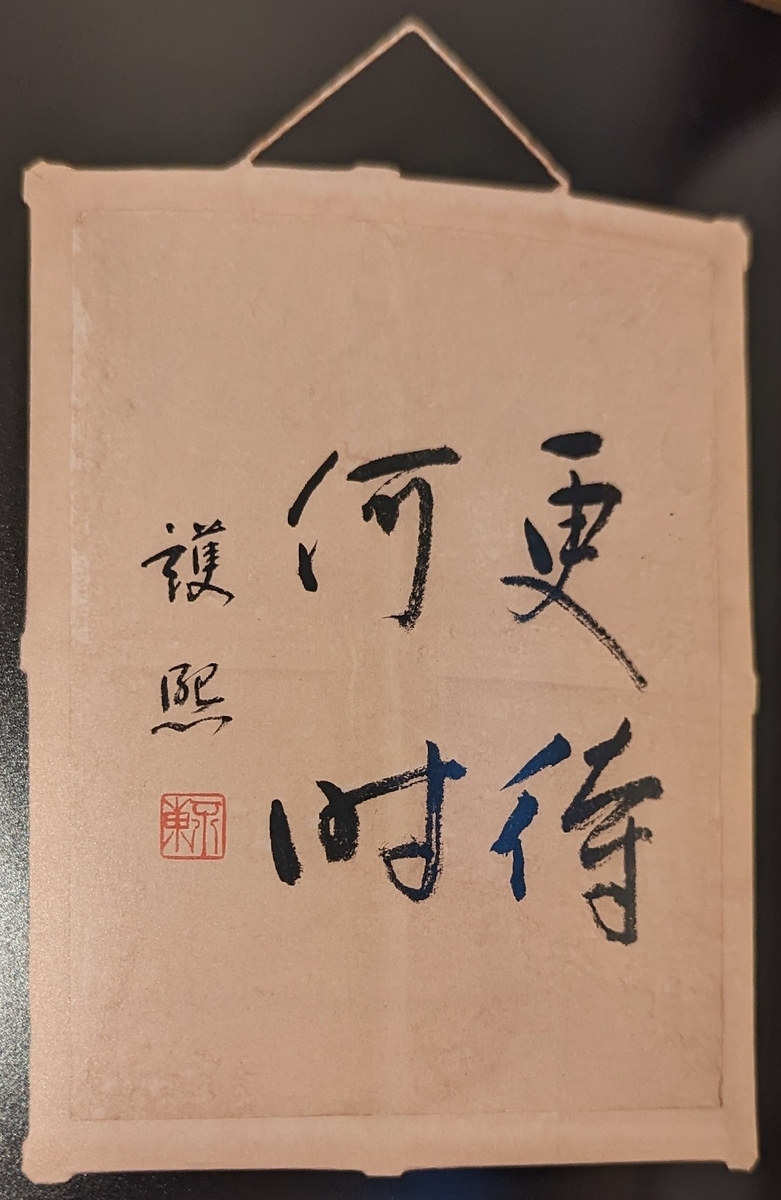 更待
何时
護熙